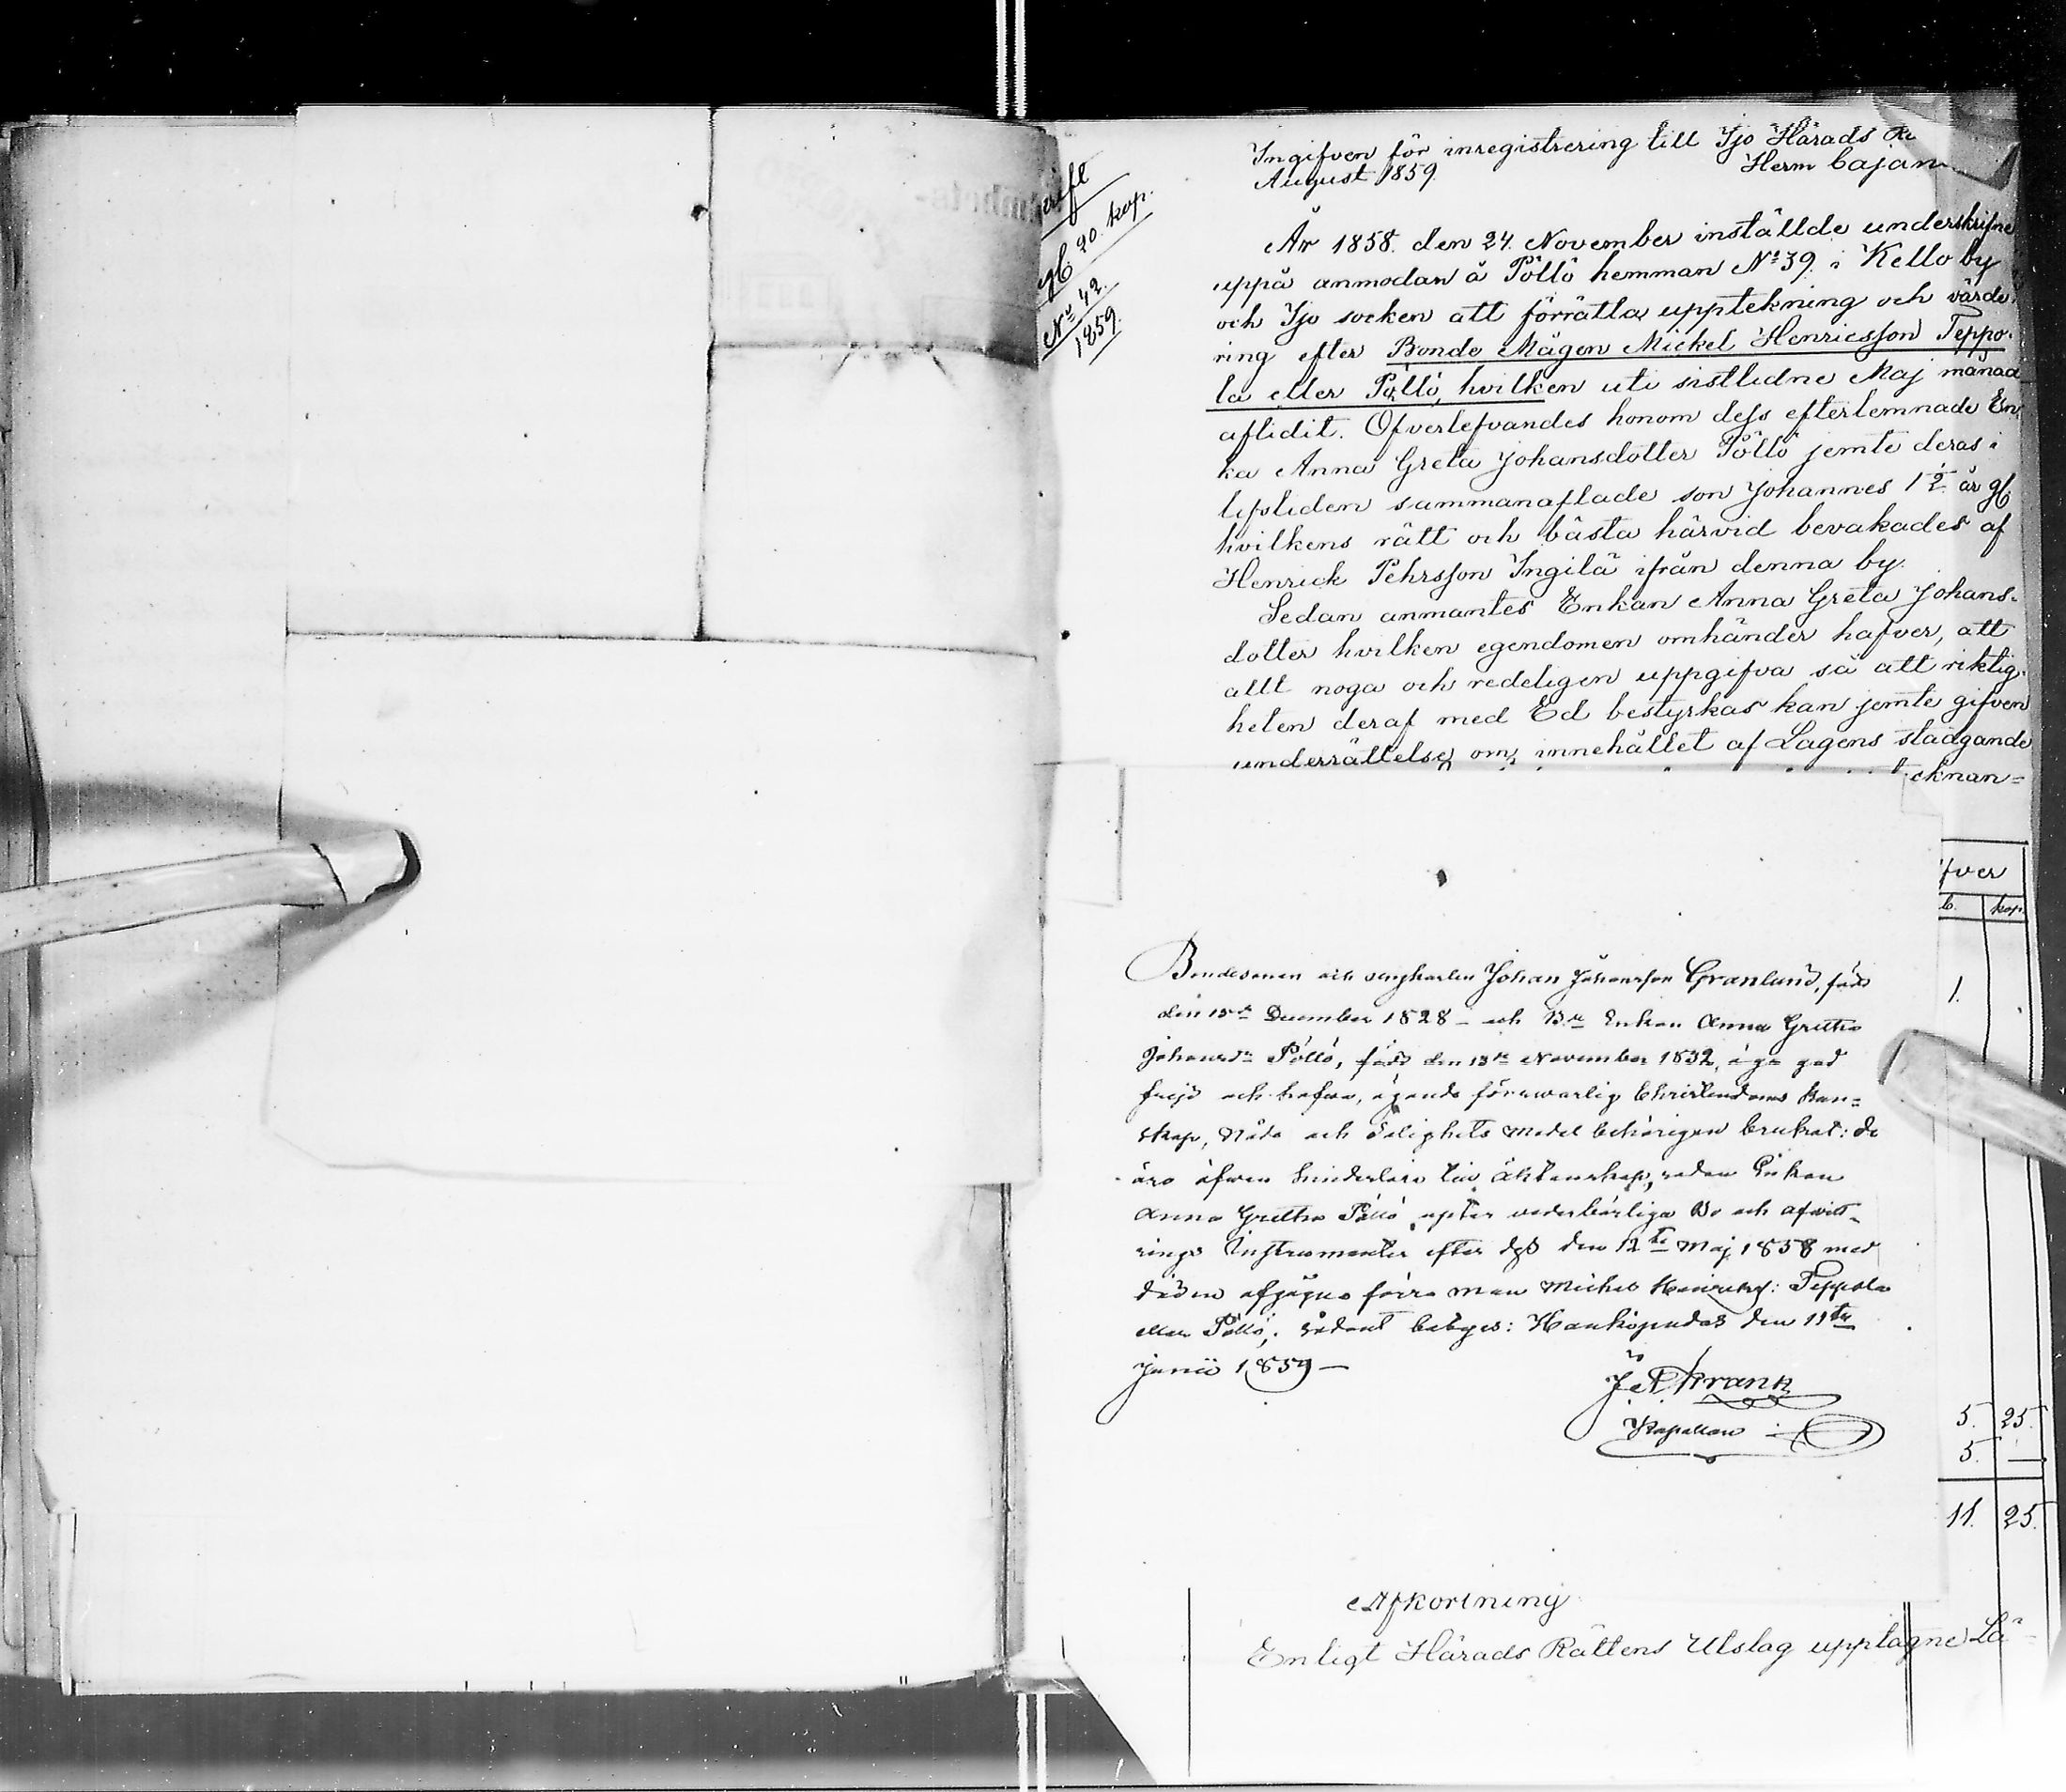 Ingifven för inregistrering till Ijo Härads Rä
August 1859. Herm Cajan
rift
gb. 20. kop.
No 42.
1859.
År 1858. den 24. November inställde underskrifne
uppå anmodan å Pöllö hemman No 39. i Kello by
och Ijo socken att förrätta upptekning och värde-
ring efter Bonde Mågen Mickel Henricsson Teppo-
la eller Pöllö, hvilken uti sistledne Maj månad
aflidit. Öfverlefvandes honom dess efterlemnade En-
ka Anna Greta Johansdotter Pöllö jemte deras i
lifstiden sammanaflade son Johannes 1 1/2 år gl
hvilkens rätt och bästa härvid bevakades af
Henrick Pehrsson Ingilä ifrån denna by.
Sedan anmantes Enkan Anna Greta Johans-
dotter hvilken egendomen omhänder hafver, att
allt noga och redeligen uppgifva så att riktig-
heten deraf med Ed bestyrkas kan jemte gifven
underrättelse om innehållet af Lagens stadgande
eknan=
fver
b. kop.
1.
Bondesonen och ungkarlen Johan Johansson Granlund, född
den 15de December 1828 – och Enkan Anna Gretha
Johansdr Pöllö, född den 13de November 1832, äga god
frejd och hafva, ägande försvarlig Christendoms kun=
skap, Nåde och Salighets medel behörigen brukat: de
äro äfven hinderlösa till äktenskap, sedan Enkan
Anna Gretha Pöllö, upter vederbörliga Bo och afvitt-
rings Instrumenter efter dess den 12te Maj 1858 med
döden afgågne förra man Michel Henricss: Teppola
eller Pöllö; sådant betyges: Haukipudas den 11te
Junii 1859 —
J A Krank
Kapellan
5. 25.
5. —
11. 25.
Afkortning
Enligt Härads Rättens Utslag upptagne Lä-